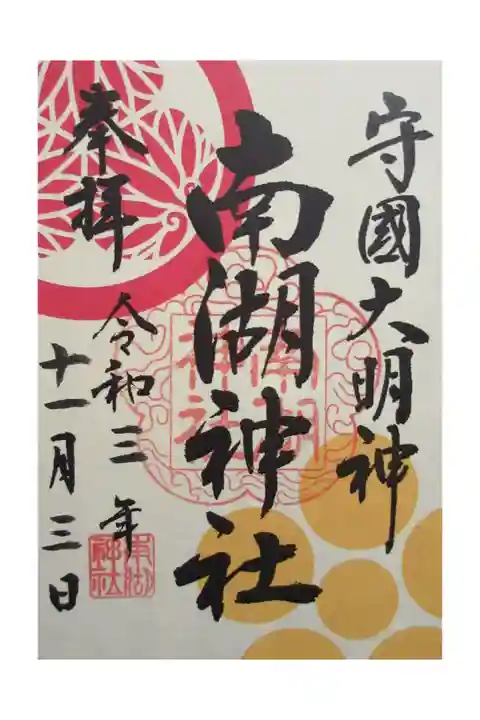 守國大明神
南湖神社
奉拝
令和三年
十一月三日
南湖
神社
南湖
神社